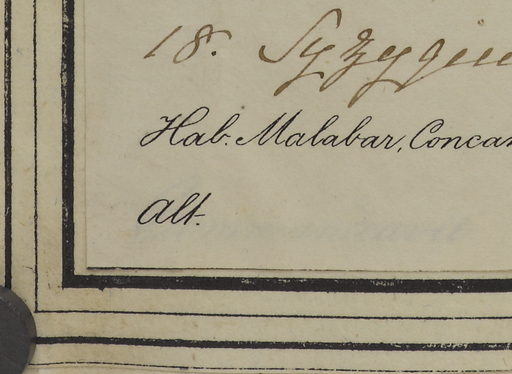 18. Syzygiu
Hab. Malabar, Concan
Alt.